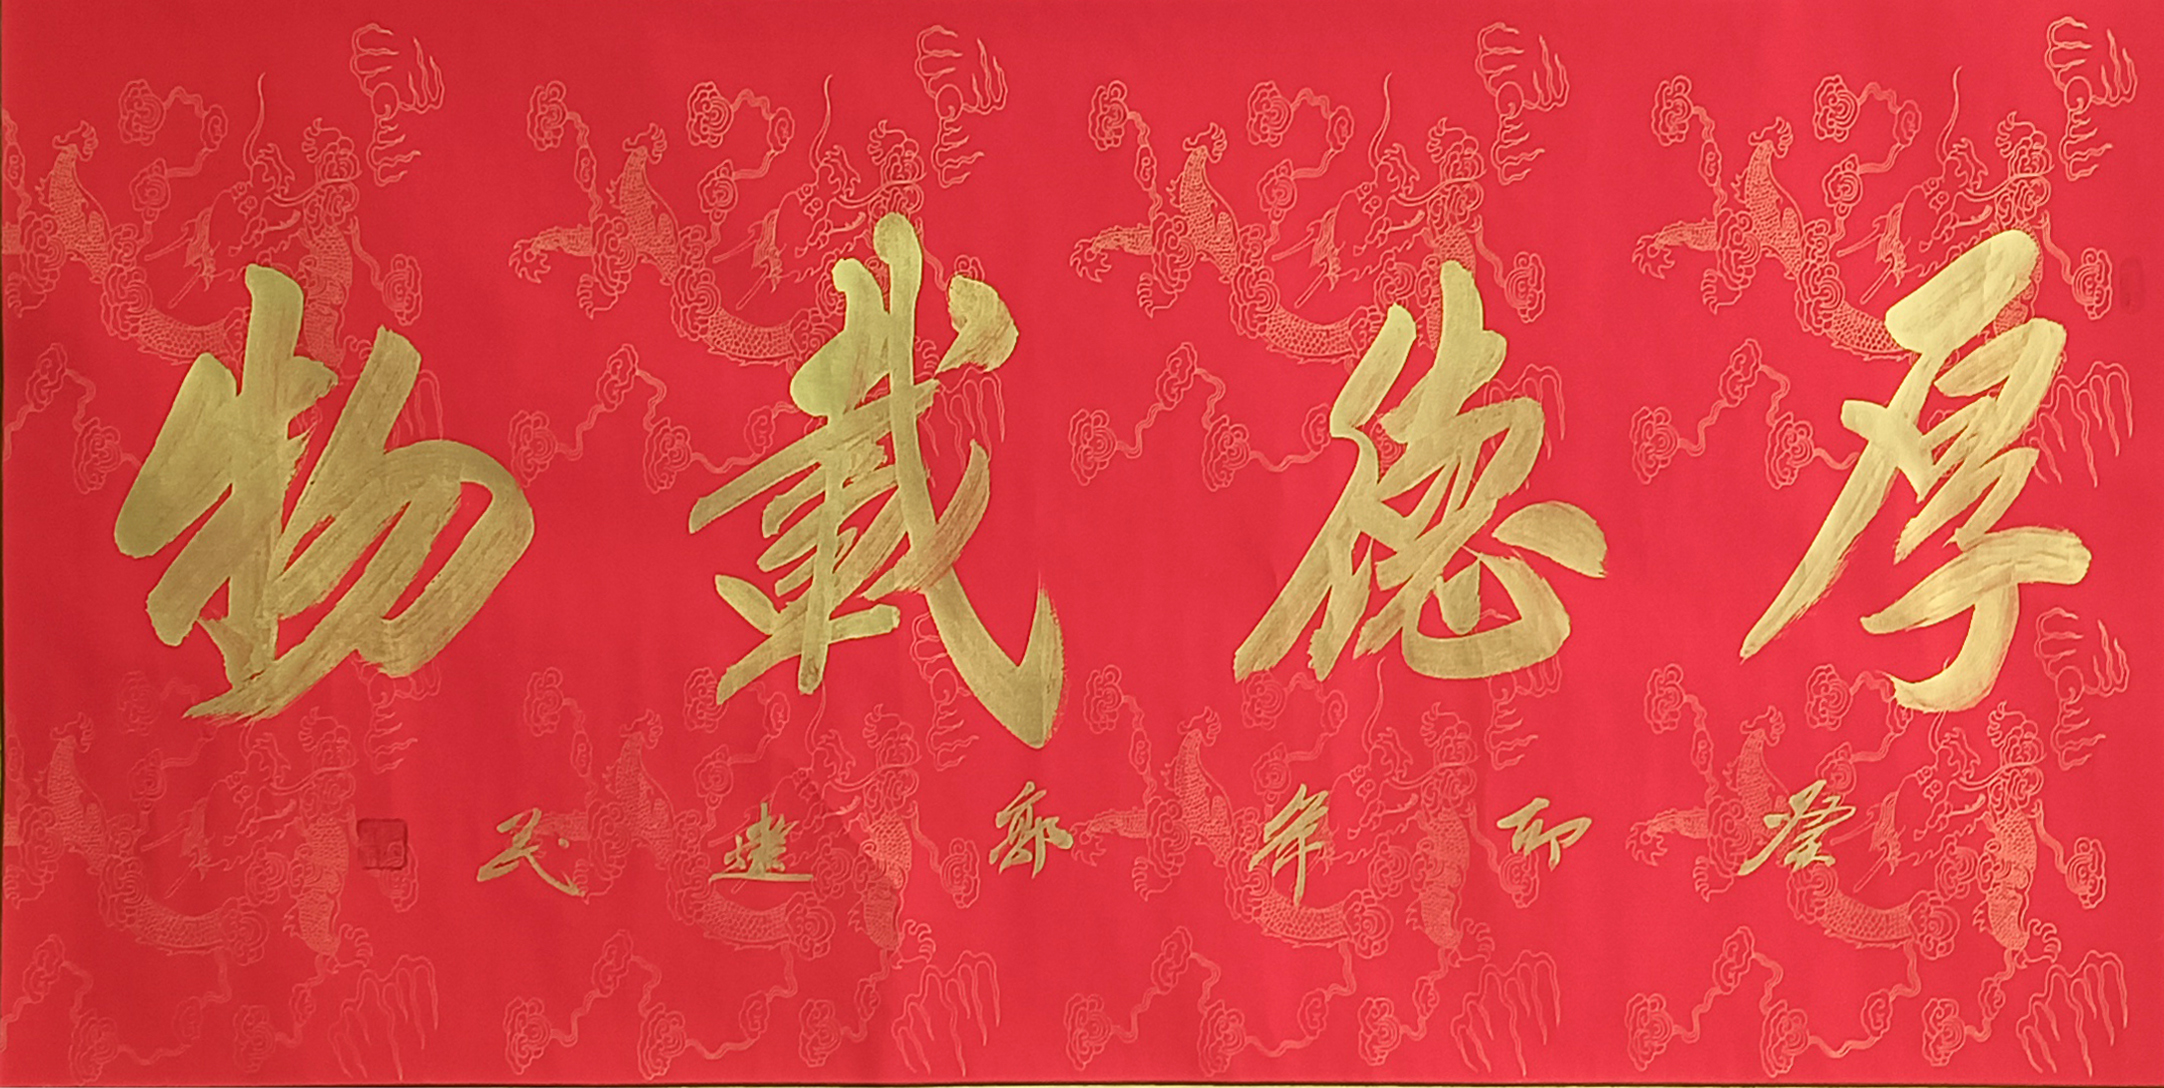 厚德載物
癸卯年郭建民